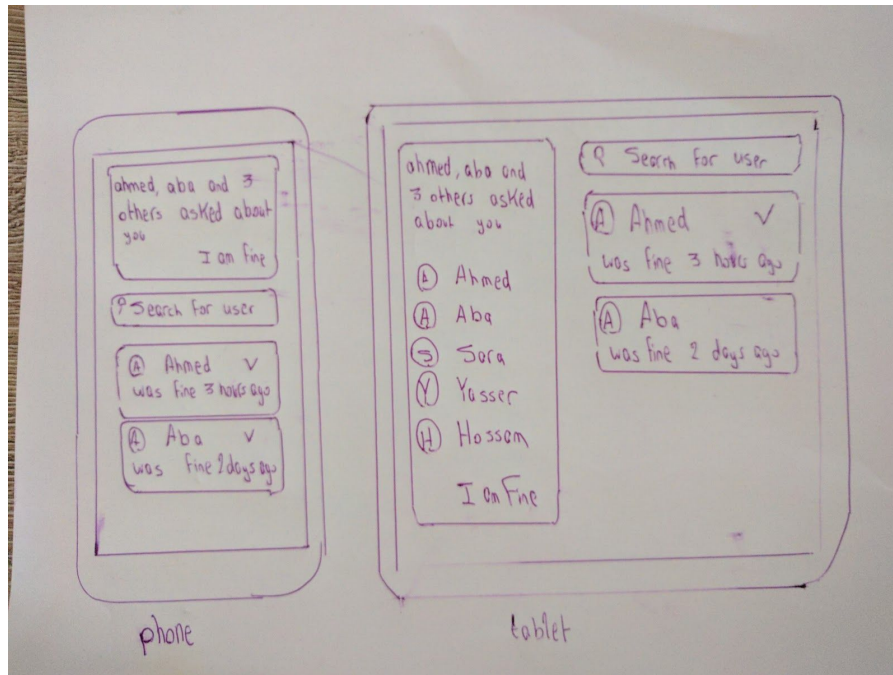 ahmed, aba and 3
others asked about
you
I am fine
Search for user
A Ahmed
was fine 3 hours ago
A Aba
was fine 2 days ago
phone
ahmed, aba and
3 others asked
about you
A Ahmed
A Aba
S Sara
Y Yasser
H Hossam
I am Fine
Search for user
A Ahmed
was fine 3 hours ago
A Aba
was fine 2 days ago
tablet